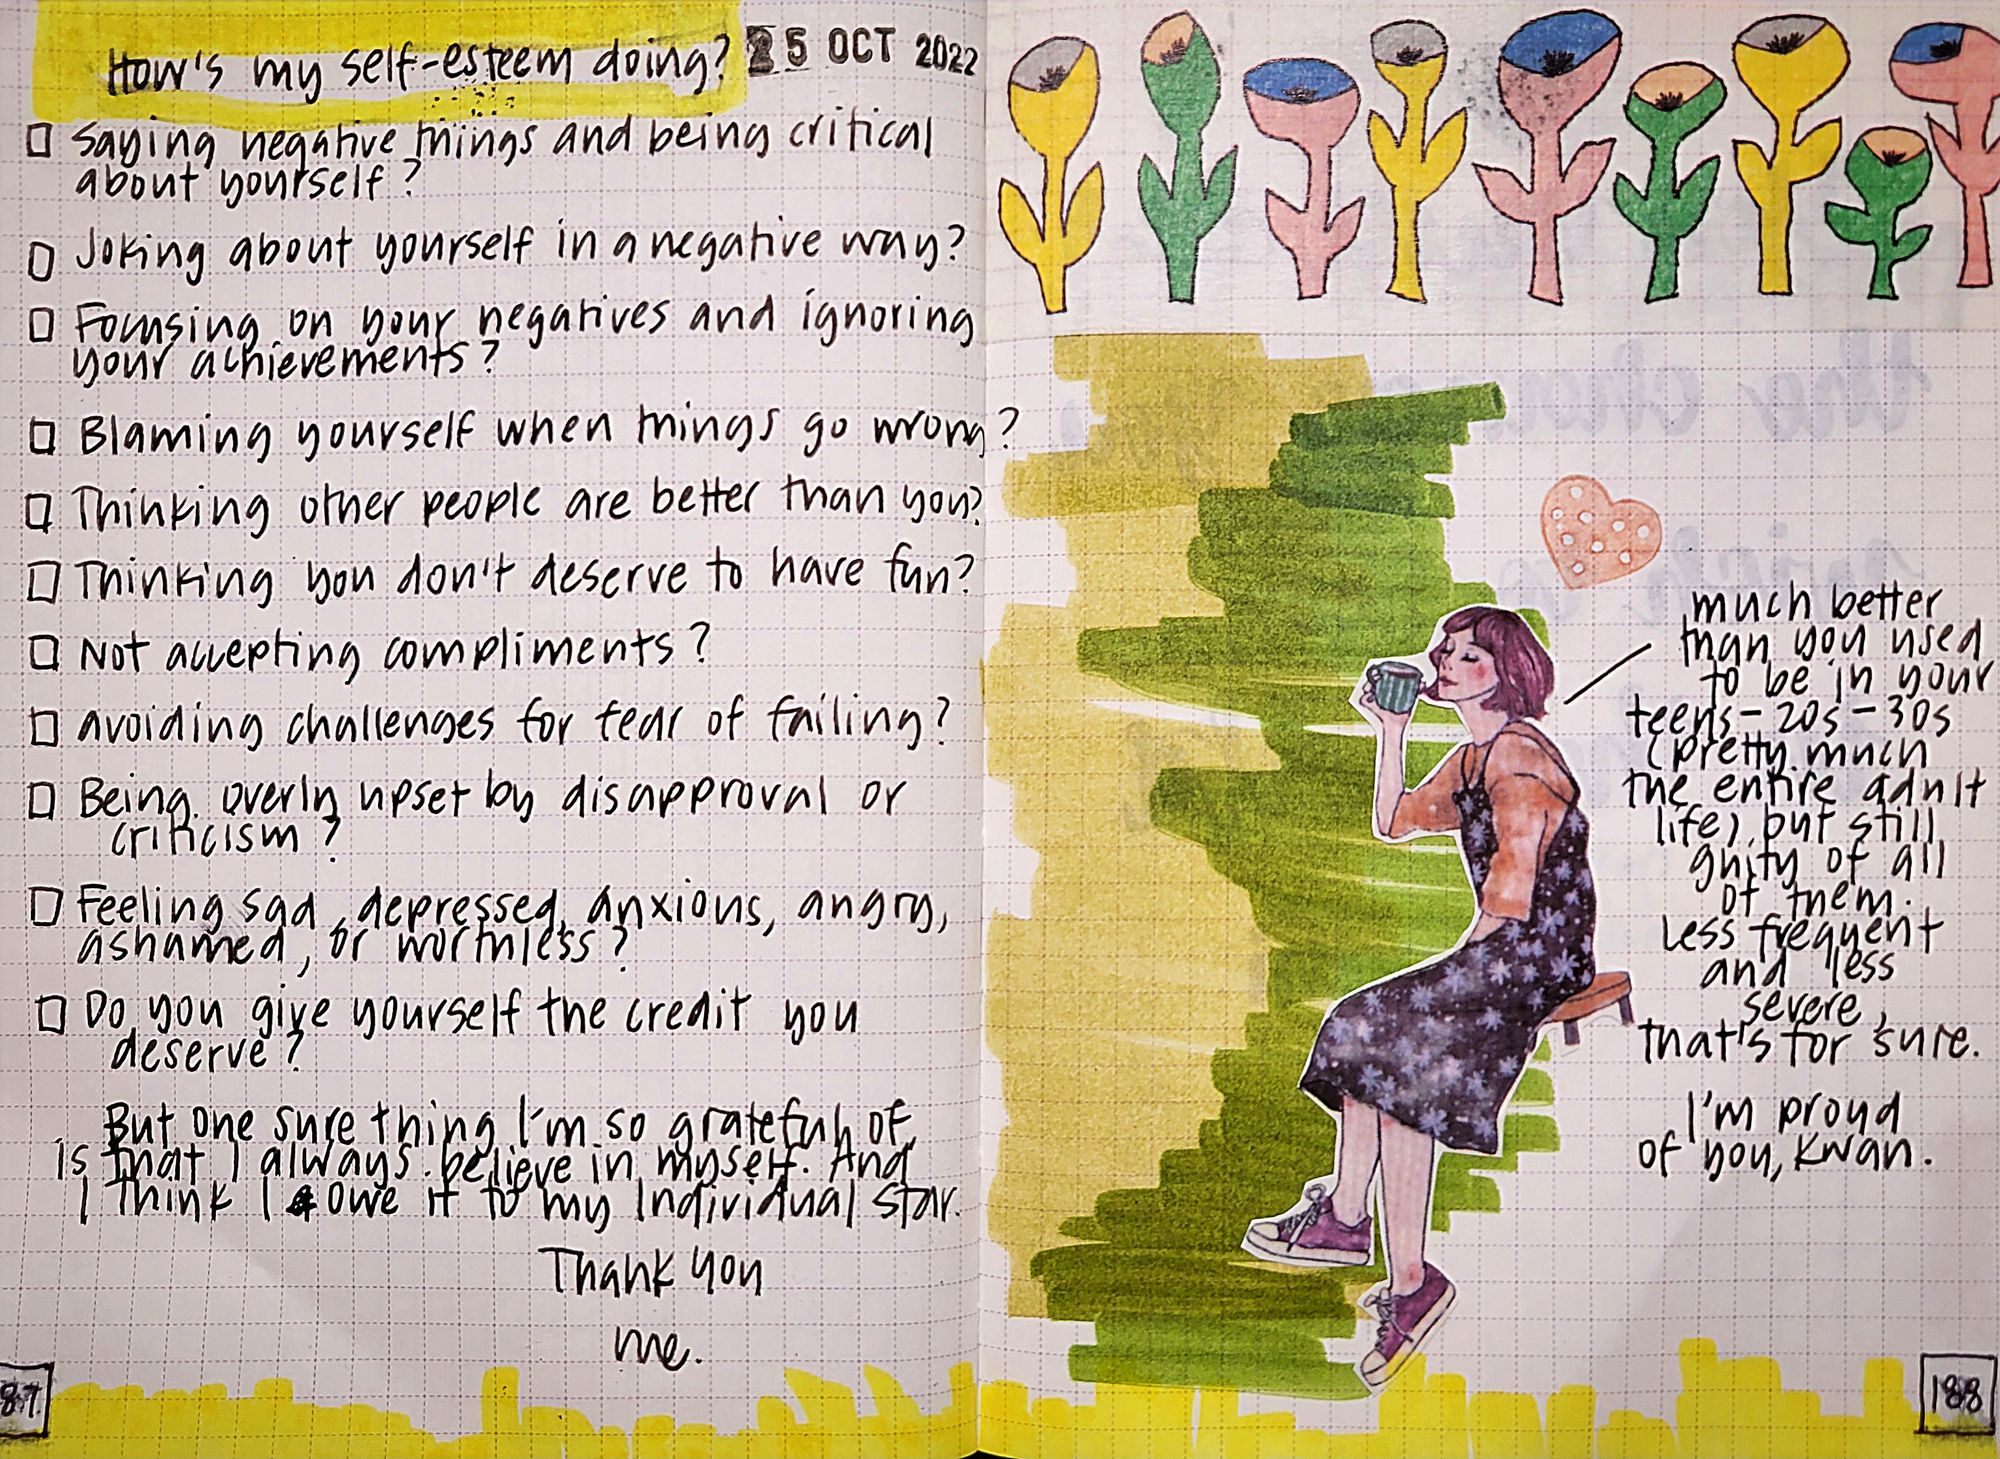 How's my self-esteem doing?
25 OCT 2022
Saying negative things and being critical
about yourself?
Joking about yourself in a negative way?
Focusing on your negatives and ignoring
your achievements?
Blaming yourself when things go wrong?
Thinking other people are better than you?
Thinking you don't deserve to have fun?
Not accepting compliments?
avoiding challenges for fear of failing?
Being overly upset by disapproval or
criticism?
Feeling sad, depressed, anxious, angry,
ashamed, or worthless?
Do you give yourself the credit you
deserve?
But one sure thing I'm so grateful of
is that I always believe in myself. And
I think I owe it to my Individual star.
Thank you
me.
87
much better
than you used
to be in your
teens-20s-30s
(pretty much
the entire adult
life) but still
guilty of all
of them.
Less frequent
and less
severe,
that's for sure.
I'm proud
of you, Kwan.
188